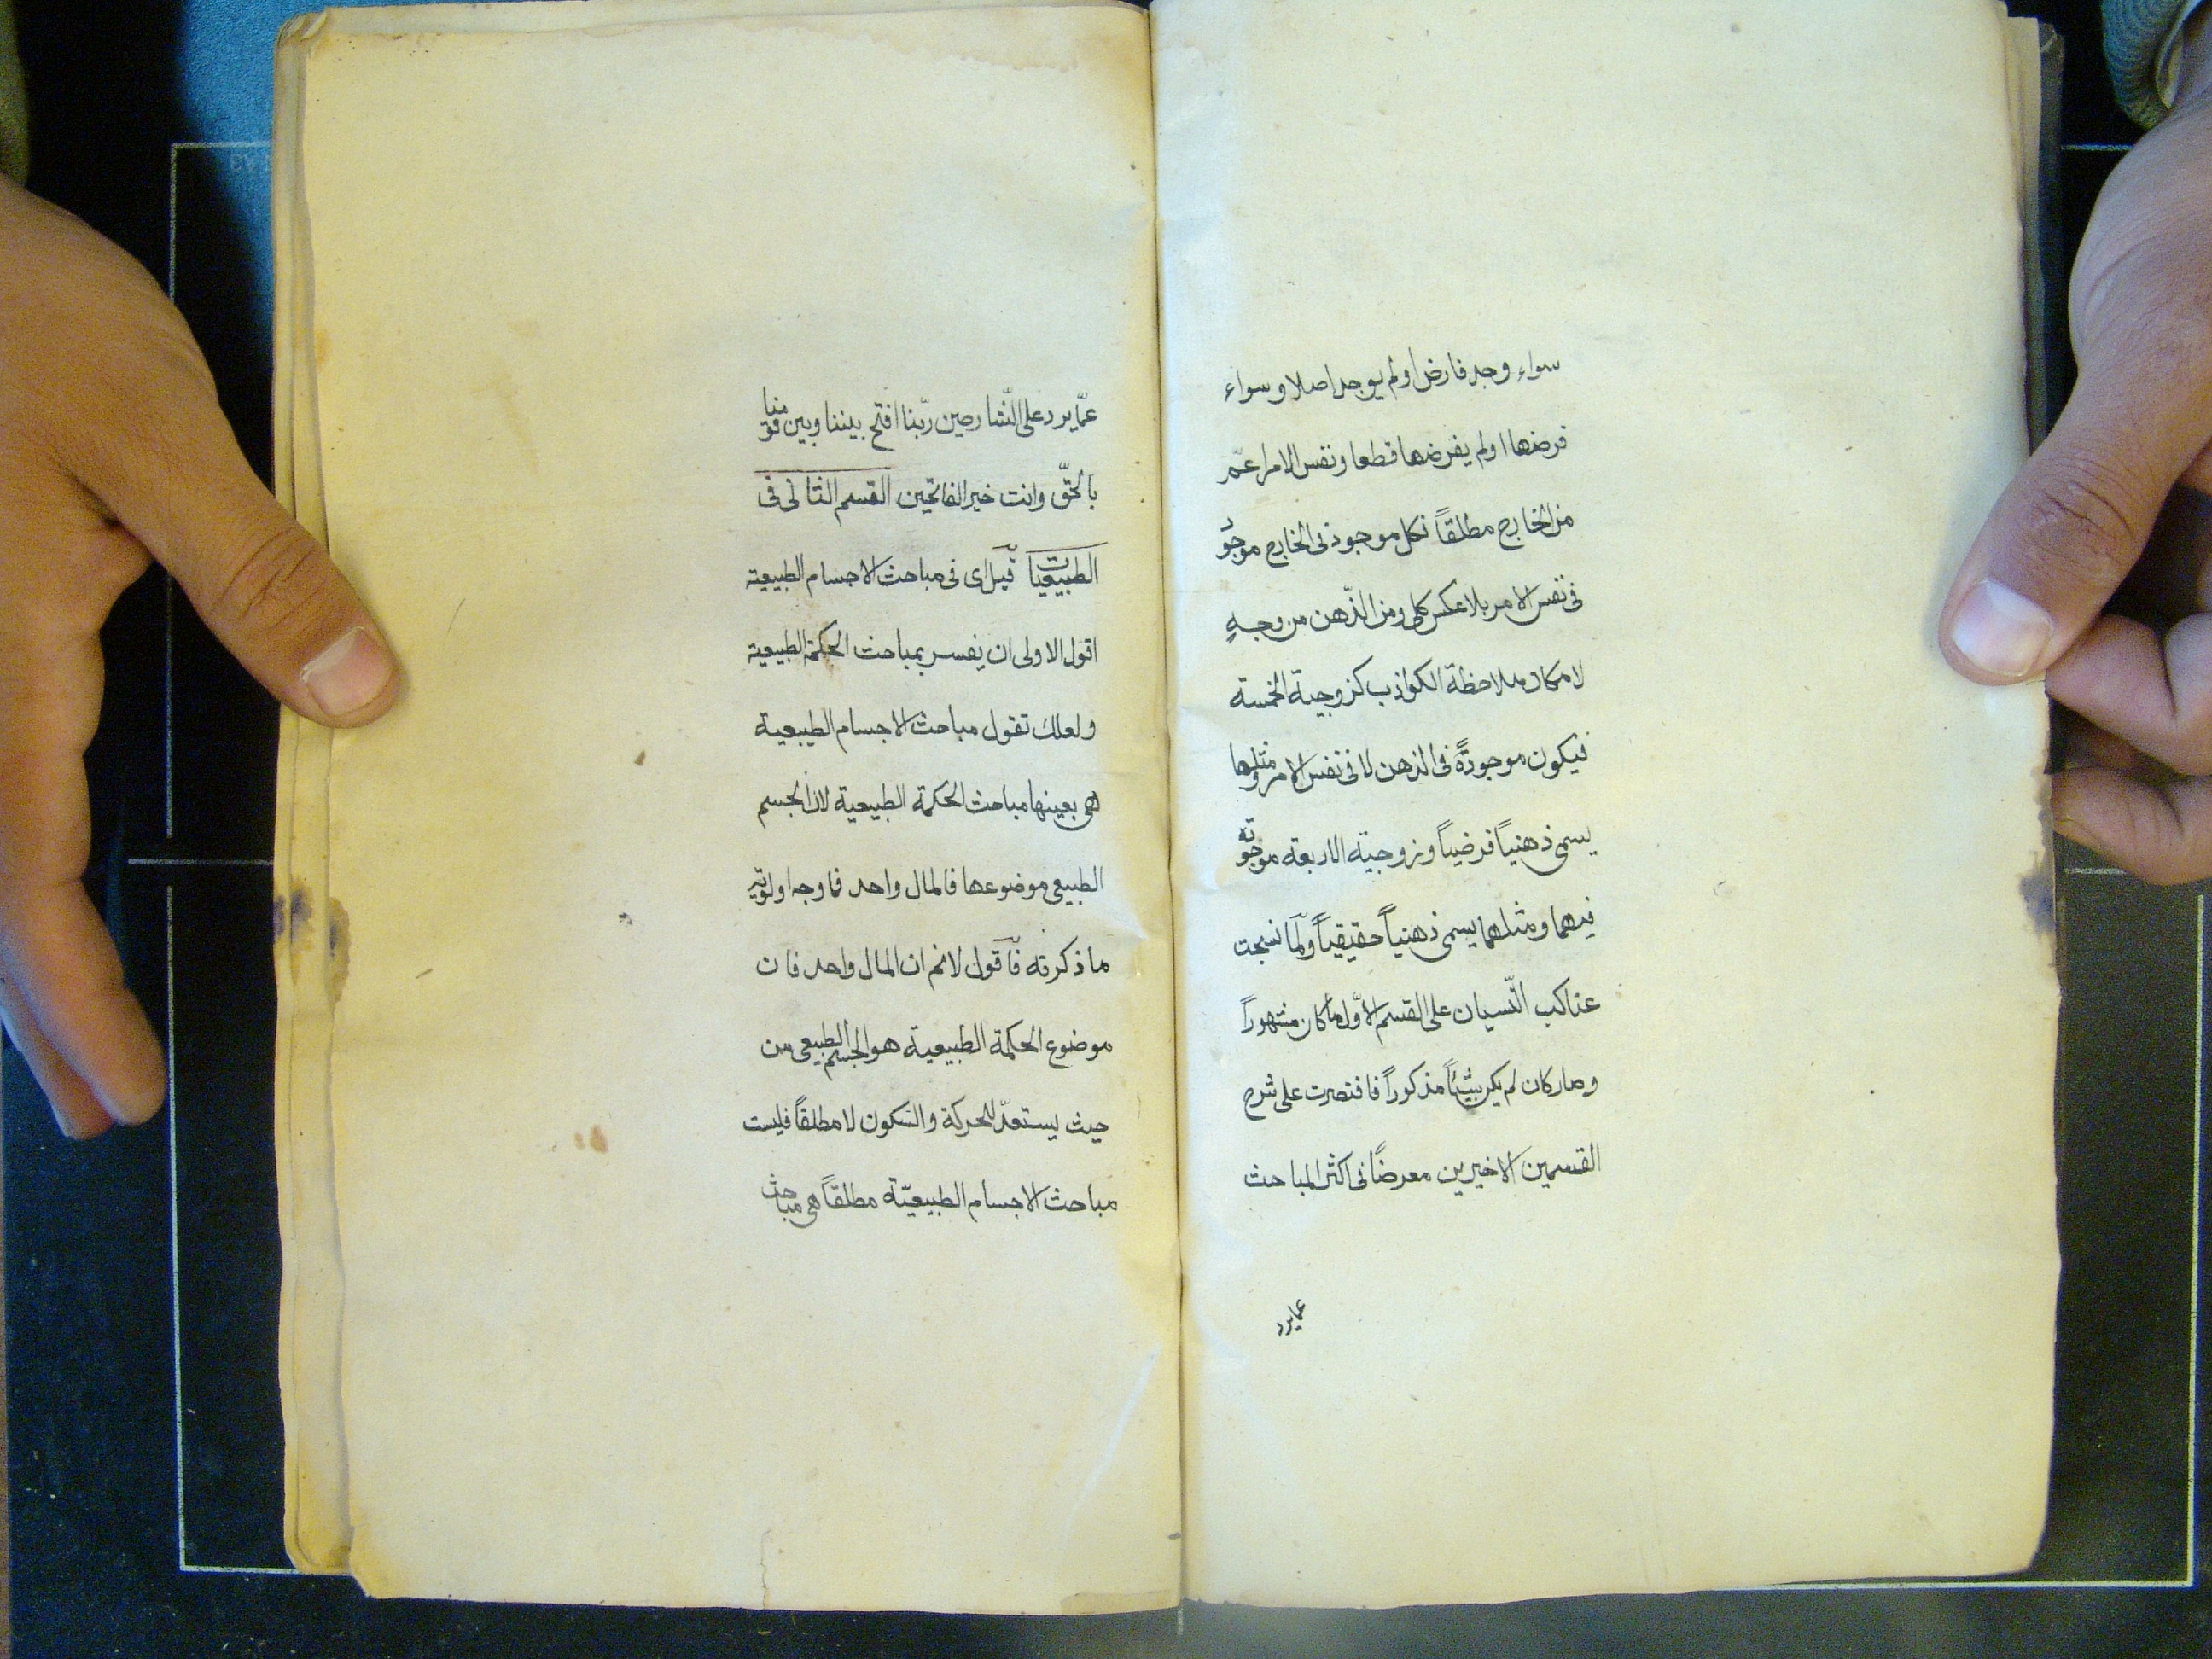 سواء وجد فارض اولم يوجد اصلا وسواء
فرضها اولم يفرضها قطعا ونفس الامر اعمّ
من الخارج مطلقاً فكل موجود فى الخارج موجود
فى نفس الامر بلا عكس كلى ومن الذّهن من وجهٍ
لامكان ملاحظة الكواذب كزوجية الخمسة
فيكون موجودةً فى الذهن لا فى نفس الامر ومثلها
يسمى ذهنياً فرضياً وزوجية الاربعة موجوده
فيهما ومثلهما يسمى ذهنياً حقيقياً ولمّا نسجت
عناكب النّسيان على القسم الاوّل ما كان مشهوراً
وصار كان لم يكن شيئاً مذكوراً فاقتصرت على شرح
القسمين الاخيرين معرضاً فى اكثر المباحث
عما يرد
عمّا يرد على الشّارحين ربّنا افتح بيننا وبين قومنا
بالحقّ وانت خير الفاتحين القسم الثانى فى
الطبيعيات قيل اى فى مباحث الاجسام الطبيعية
اقول الاولى ان يفسر بمباحث الحكمة الطبيعية
ولعلك تقول مباحث الاجسام الطبيعية
هى بعينها مباحث الحكمة الطبيعية لان الجسم
الطبيعى موضوعها فالمال واحد فما وجه اولوية
ما ذكرته فاقول لانم ان المال واحد فان
موضوع الحكمة الطبيعية هو الجسم الطبيعى من
حيث يستعدّ للحركة والسّكون لا مطلقاً فليست
مباحث الاجسام الطبيعيّة مطلقاً هى مباحث